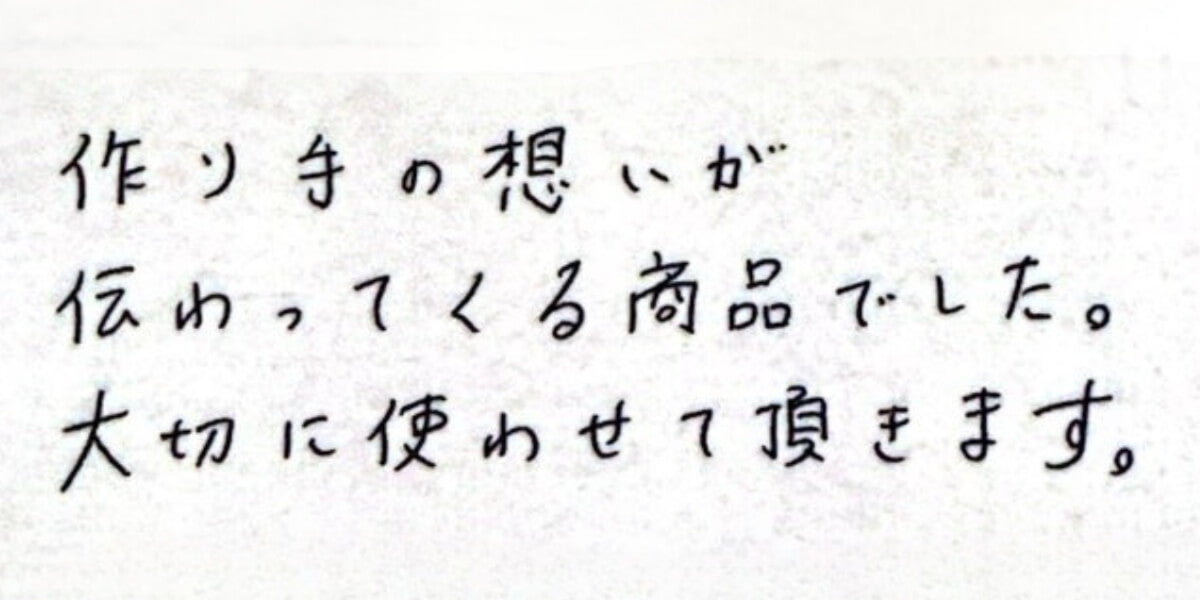 作り手の想いが
伝わってくる商品でした。
大切に使わせて頂きます。